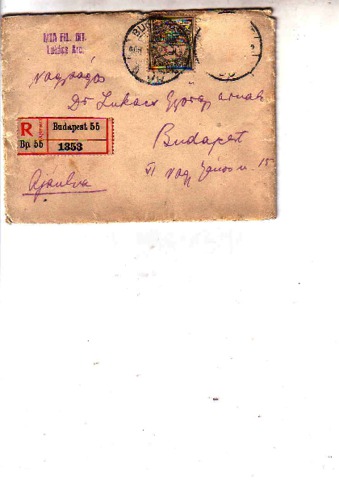 MTA FIL. INT.
Lukács Arc.
BUDAPEST
Nagyságos
Dr Lukács György úrnak
Budapest
VI Nagy János u. 15
R Budapest 55
Bp. 55 1353
Ajánlva